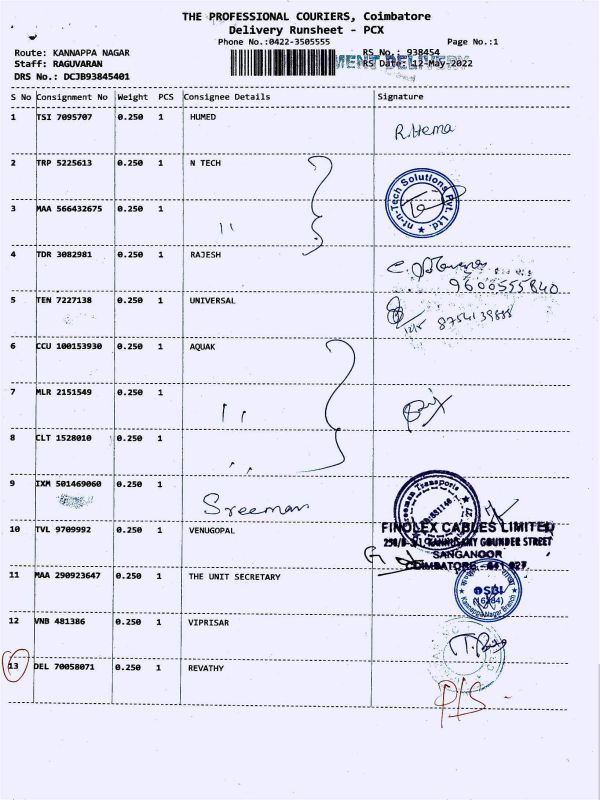 THE PROFESSIONAL COURIERS, Coimbatore
Delivery Runsheet - PCX
Phone No.:0422-3505555 Page No.:1
Route: KANNAPPA NAGAR RS No.: 938454
Staff: RAGUVARAN RS Date: 12-May-2022
DRS No.: DCJB93845401
S No Consignment No Weight PCS Consignee Details Signature
1 TSI 7095707 0.250 1 HUMED R.Hema
2 TRP 5225613 0.250 1 N TECH
nt-n-Tech Solutions Pvt. Ltd.
3 MAA 566432675 0.250 1 ''
4 TDR 3082981 0.250 1 RAJESH
9600555840
5 TEN 7227138 0.250 1 UNIVERSAL
12/5 8754139888
6 CCU 100153930 0.250 1 AQUAK
7 MLR 2151549 0.250 1 ''
8 CLT 1528010 0.250 1 ''
9 IXM 501469060 0.250 1 Sreeman
Transports
10 TVL 9709992 0.250 1 VENUGOPAL
FINOLEX CABLES LIMITED
KANNUSAMY GOUNDER STREET
SANGANOOR
COIMBATORE - 641 027
11 MAA 290923647 0.250 1 THE UNIT SECRETARY
SBI
Kannappa Nagar Branch
12 VNB 481386 0.250 1 VIPRISAR
13 DEL 70058071 0.250 1 REVATHY
P/S